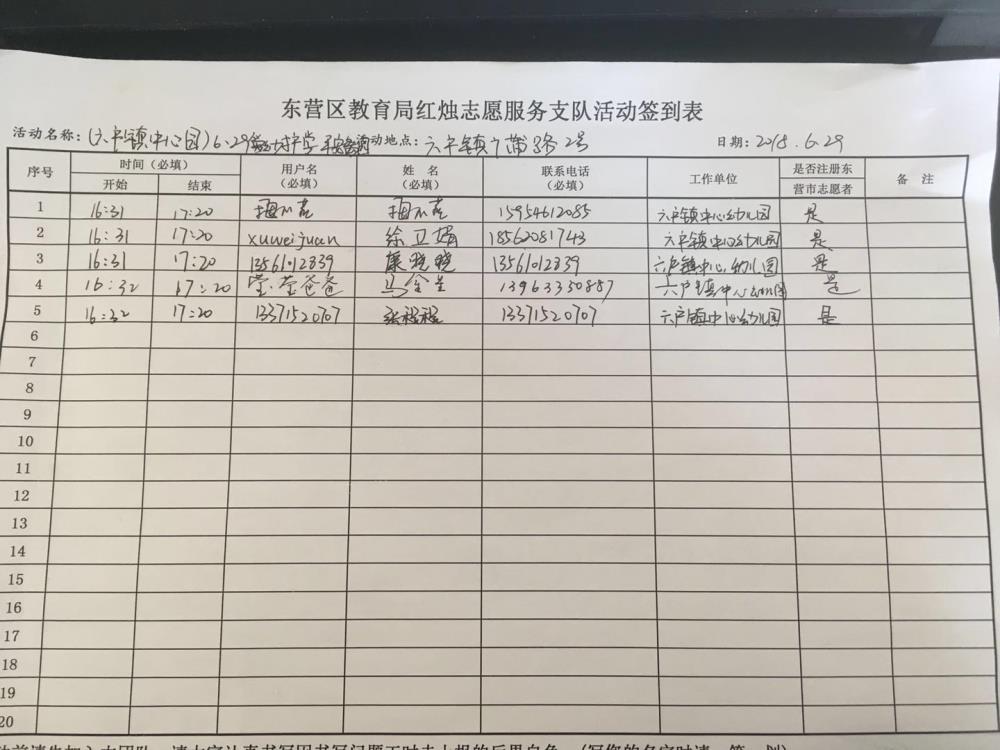 东营区教育局红烛志愿服务支队活动签到表
活动名称：(六户镇中心园)6.29 活动地点：六户镇广蒲路2号 日期：2018.6.29
序号 时间（必填） 用户名（必填） 姓名（必填） 联系电话（必填） 工作单位 是否注册东营市志愿者 备注
开始 结束
1 16:31 17:20 15954612085 六户镇中心幼儿园 是
2 16:31 17:20 xuweijuan 徐卫娟 18562081743 六户镇中心幼儿园 是
3 16:31 17:20 13561012839 康晓晓 13561012839 六户镇中心幼儿园 是
4 16:32 17:20 莹莹爸爸 13963350887 六户镇中心幼儿园 是
5 16:32 17:20 13371520707 张程程 13371520707 六户镇中心幼儿园 是
6
7
8
9
10
11
12
13
14
15
16
17
18
19
20